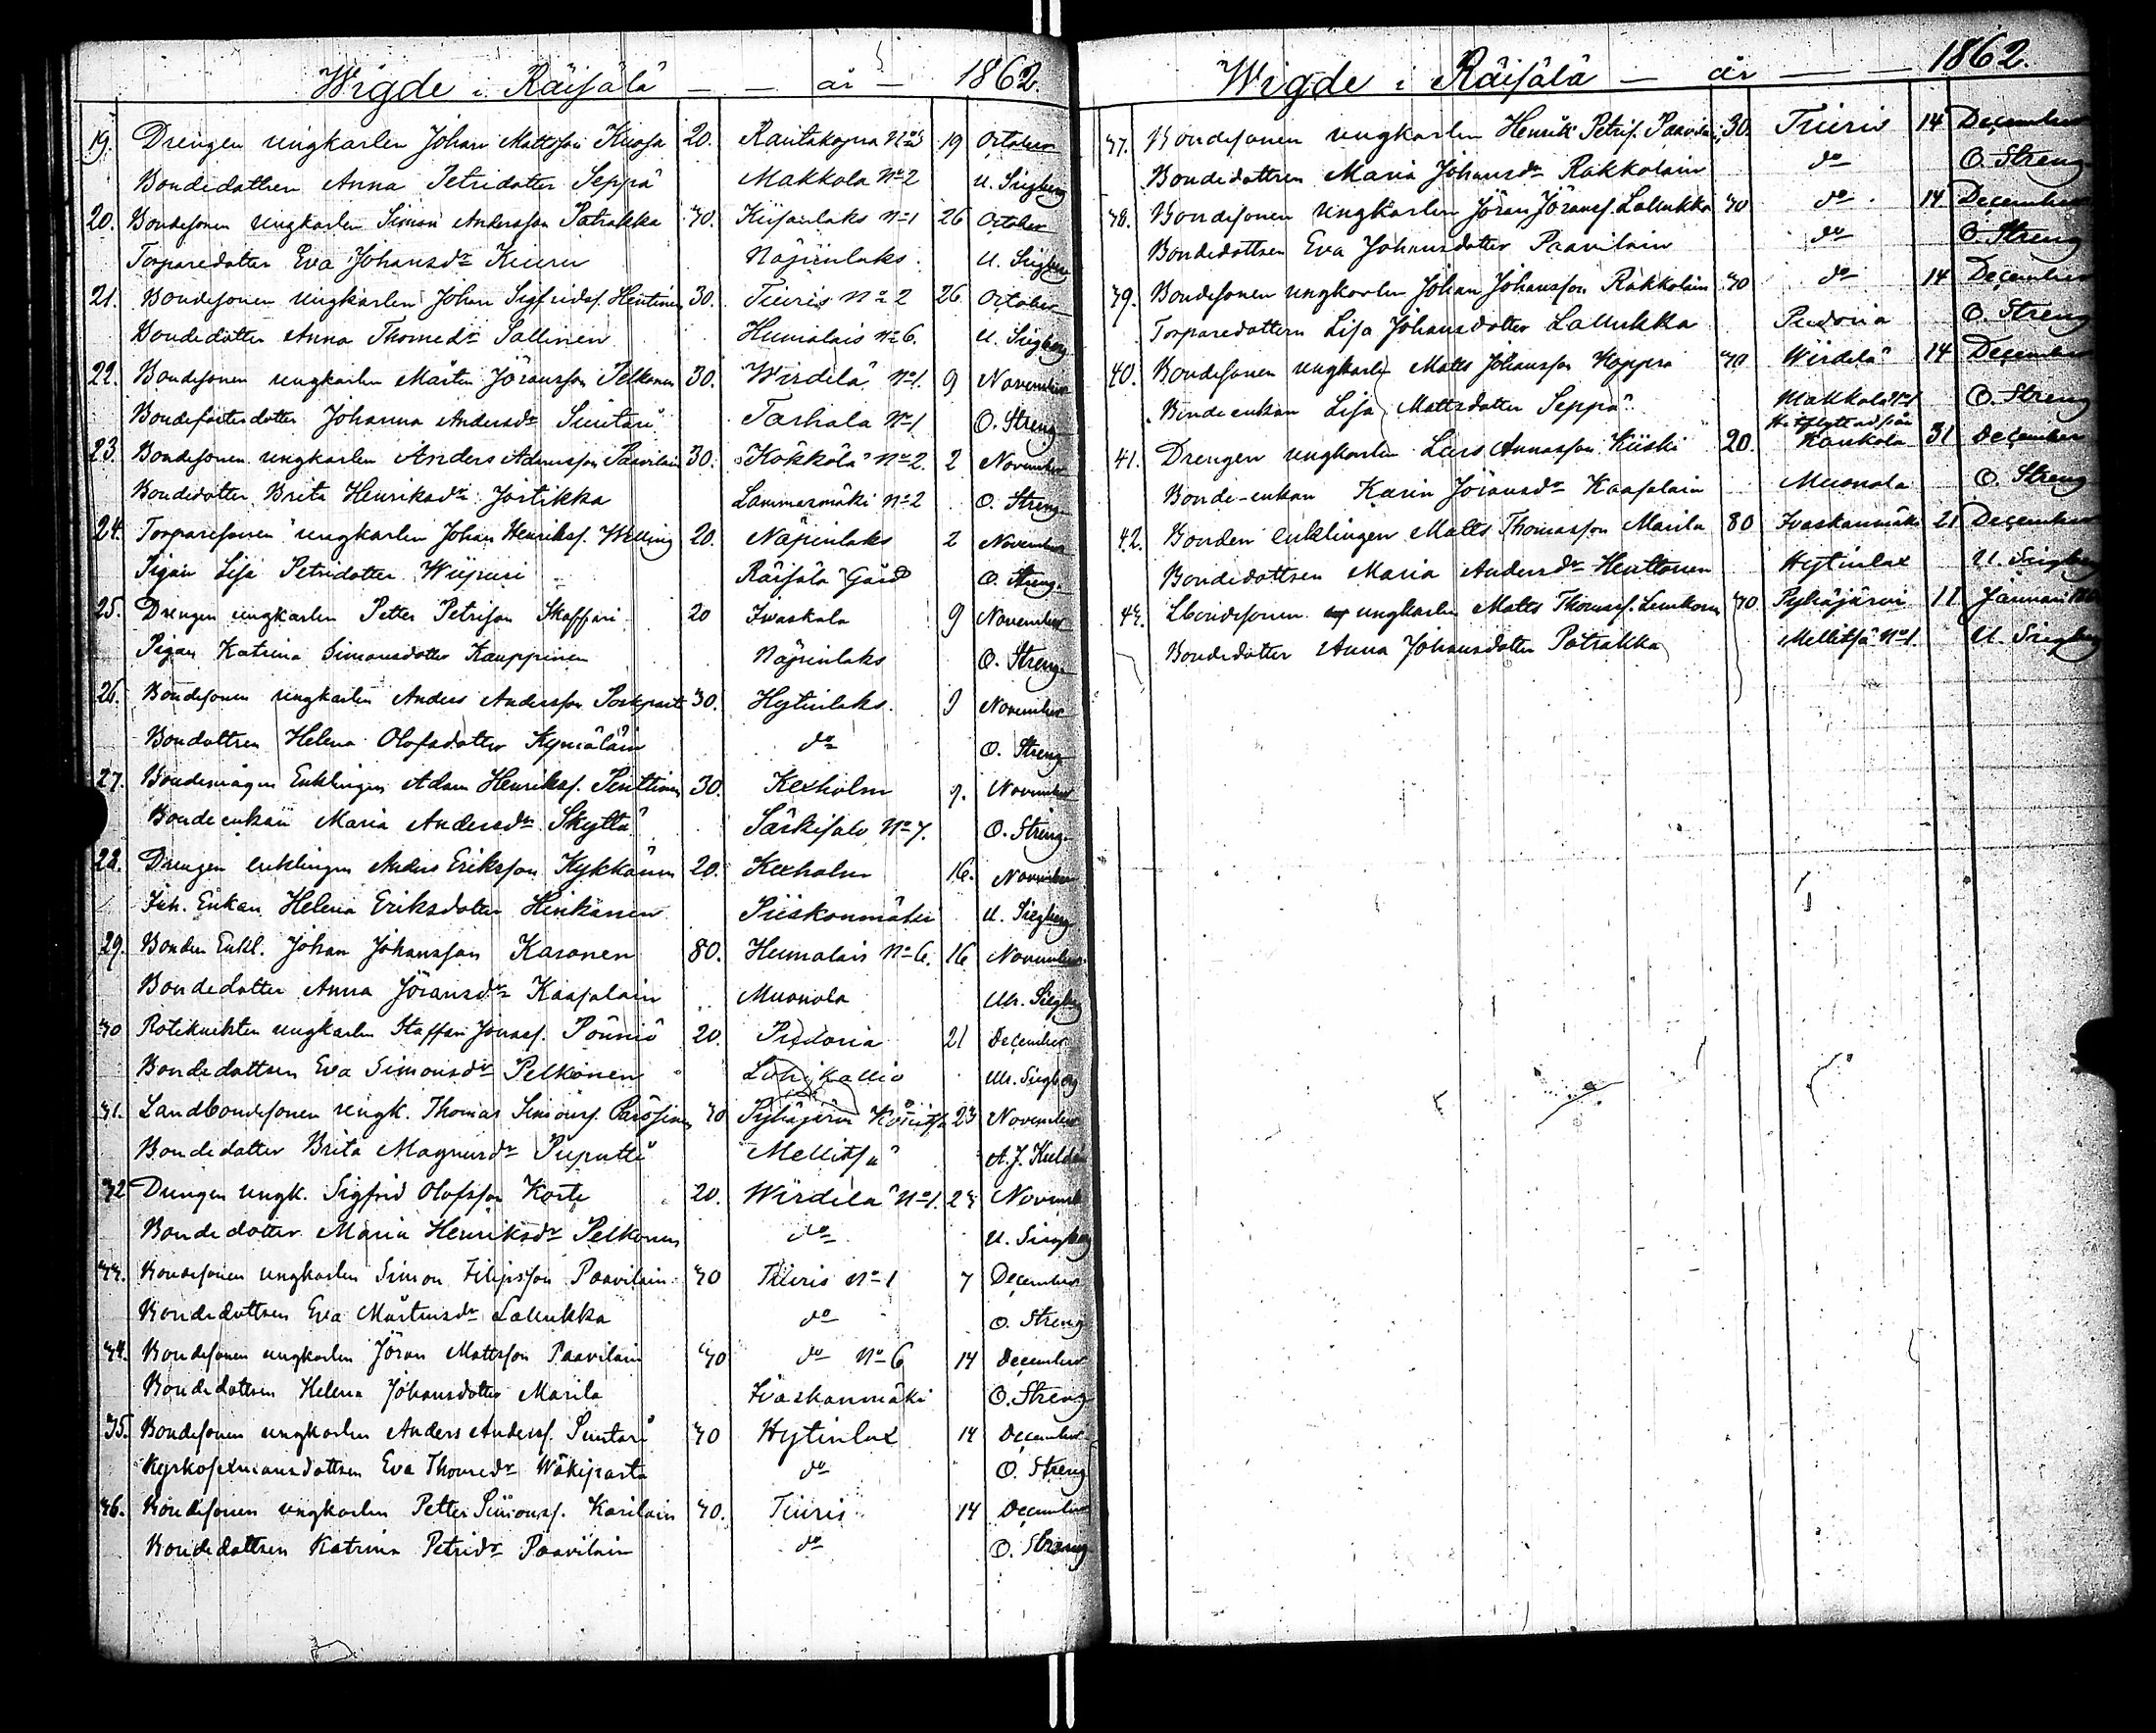 Wigde i Räisälä — — år — 1862.
19. Drengen ungkarlen Johan Mattsson Kuosa 20. Rautakorpia No 3 19 October
Bondedottren Anna Petridotter Seppä Makkola No 2 U. Siegberg
20. Bondesonen ungkarlen Simon Andersson Patrakka 30. Kiisanlaks No 1 26 October
Torparedotter Eva Johansdr Kuuru Näpinlaks. U. Siegberg
21. Bondesonen ungkarlen Johan Sigfridss. Hentinen 30. Tiuris No 2 26 October
Bondedotter Anna Thomedr Sallinen Humalais No 6. U. Siegberg
22. Bondesonen ungkarlen Mårten Jöransson Pelkonen 30. Wirdelä No 1. 9 November
Johanna Andersdr Suntari Tarhala No 1 O. Streng
23. Bondesonen ungkarlen Anders Adamsson Paavilain 30. Kökkölä No 2. 2 November
Bondedotter Brita Henriksdr Jortikka Lammasmäki No 2 O. Streng
24. Torparesonen ungkarlen Johan Henrikss. Welling 20. Näpinlaks 2 November
Pigan Lisa Petridotter Wiipuri Räisälä Gård O. Streng.
25. Drengen ungkarlen Petter Petrison Skaffari 20 Ivaskala 9 November
Pigan Katrina Simonsdotter Kauppinen Näpinlaks O. Streng
26. Bondesonen ungkarlen Anders Andersson Poskiparta 30. Hytinlaks. 9 November
Bondottren Helena Olofsdotter Kymäläin do O. Streng
27. Bondemågen Enklingen Adam Henrikss. Penttinen 30. Kexholm 9. November
Bondeenkan Maria Andersdr Skyttä Särkisalo No 7. O. Streng.
28. Drengen enklingen Anders Eriksson Kykkänen 20. Kexholm 16. November
Inh. Enkan Helena Eriksdotter Hinkanen Piiskonmäki U. Siegberg
29. Bonden Enkl. Johan Johansson Karonen 80. Humalais No 6. 16 November
Bondedotter Anna Jöransdr Kaasalain Muonola Ulr. Siegberg
30 Rotiknekten ungkarlen Staffan Pönniö 20. Pixdoria 21 December
Bondedottren Eva Simonsdr Pelkonen Lohikallio Ulr. Siegberg
31. Landbondesonen ungk. Thomas Simonss. Pärssinen 30 Pyhäjärvi Konitsa 23 November
Bondedotter Brita Magnusdr Puputti Mellitsä A. J. Kuldin
32 Drengen ungk. Sigfrid Olofsson Korte 20. Wirdelä No 1. 23 Novemb
Bondedotter Maria Henriksdr Pelkonen do U. Siegberg
33. Bondesonen ungkarlen Simon Filipsson Paavilain 30 Tiuris No 1 7 December
Bondedottren Eva Mårtensdr Lallukka do O. Streng
34. Bondesonen ungkarlen Jöran Mattsson Paavilain 30 do No 6 14 December
Bondedottren Helena Johansdotter Marila Ivaskanmäki O. Streng
35. Bondesonen ungkarlen Anders Anderss. Suntari 30 Hytinlax 14 December
Kyrkosexmansdottren Eva Thomedr Wäkiparta do O. Streng
36. Bondesonen ungkarlen Petter Simonss. Karilain 30. Tiuris 14 December
Bondedottren Katrina Petridr Paavilain do O. Streng
Wigde i Räisälä — år — — 1862.
37. Bondesonen ungkarlen Henrik Petris. Paavilain 30. Tiuris 14 December
Bondedottren Maria Johansdr Rakkolain do O. Streng
38. Bondesonen ungkarlen Jöran Jöranss. Lallukka 30 do 14 December
Bondedottren Eva Johansdotter Paavilain do O. Streng
39. Bondesonen ungkarlen Johan Johansson Rakkolain 30 do 14 December
Torparedottern Lisa Johansdotter Lallukka Pixdoria O. Streng
40. Bondesonen ungkarlen Matts Johansson Hoppra 30 Wirdelä 14 December
Bondeenkan Lisa Mattsdotter Seppä Makkola No 1 O. Streng
Hitflyttad från
41. Drengen ungkarlen Lars Annasson Kiiski 20. Kaukola 31 December
Bonde-enkan Karin Jöransdr Kaasalain Muonola O. Streng
42. Bonden enklingen Matts Thomasson Marila 80 Ivaskanmäki 21 December
Bondedottren Maria Andersdr Henttonen Hytinlax U. Siegberg
43. Bondesonen ungkarlen Matts Thomass. Lemkonen 30. Pyhäjärvi 11 Januari
Bondedotter Anna Johansdotter Patrakka Mellitsä No 1. U. Siegberg